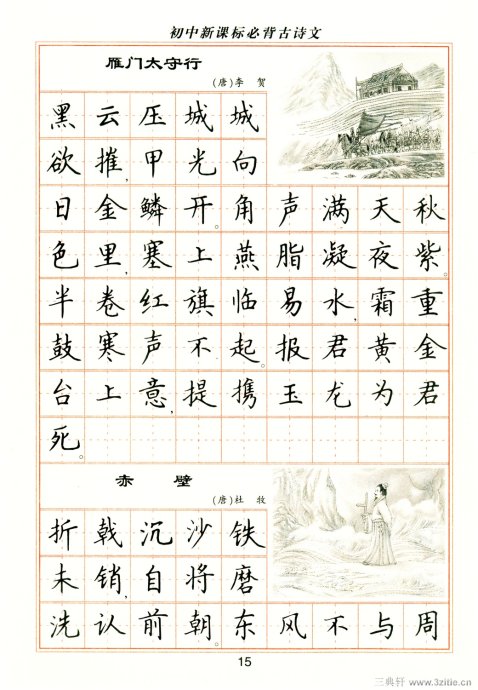 初中新课标必背古诗文
雁门太守行
(唐)李 贺
黑云压城城
欲摧,甲光向
日金鳞开。角声满天秋
色里,塞上燕脂凝夜紫。
半卷红旗临易水,霜重
鼓寒声不起。报君黄金
台上意,提携玉龙为君
死。
赤 壁
(唐)杜 牧
折戟沉沙铁
未销,自将磨
洗认前朝。东风不与周
15
三典轩 www.3zitie.cn